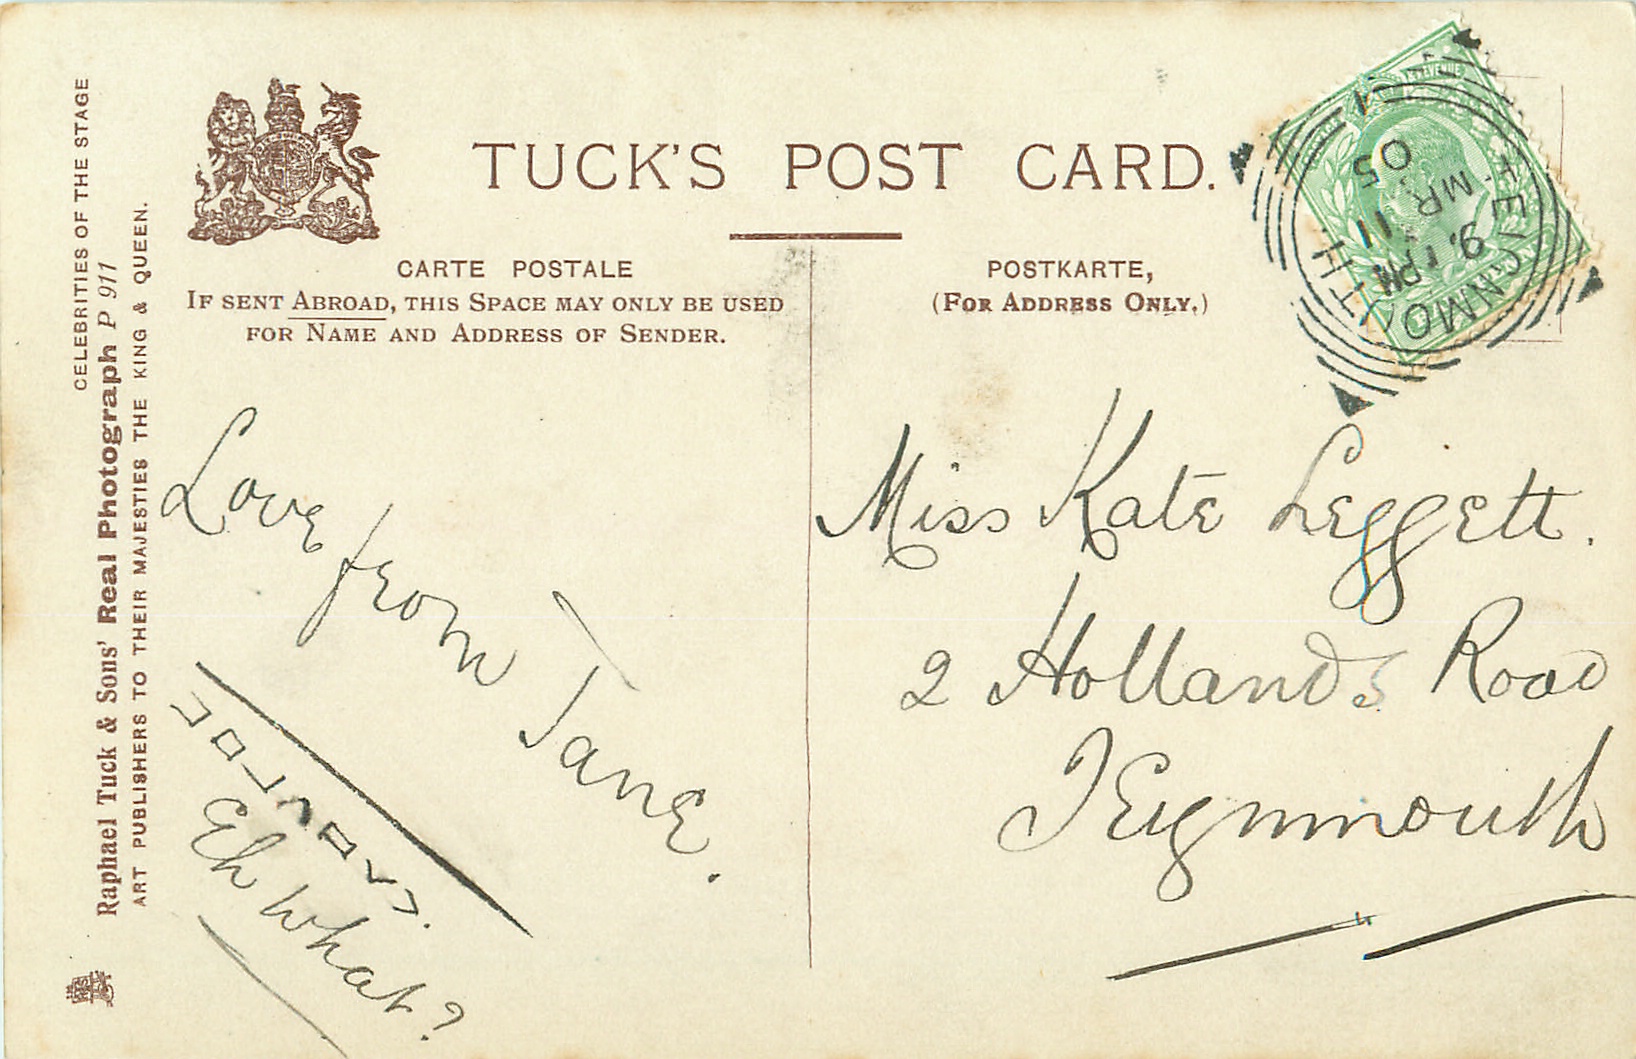 CELEBRITIES OF THE STAGE
Raphael Tuck & Sons' Real Photograph P 911
ART PUBLISHERS TO THEIR MAJESTIES THE KING & QUEEN.
TUCK'S POST CARD.
CARTE POSTALE
IF SENT ABROAD, THIS SPACE MAY ONLY BE USED
FOR NAME AND ADDRESS OF SENDER.
POSTKARTE,
(FOR ADDRESS ONLY.)
REVENUE
TEIGNMOUTH
9.1 PM
11
MR
05
Love from Jane.
Eh what?
Miss Kate Leggett.
2 Hollands Road
Teignmouth